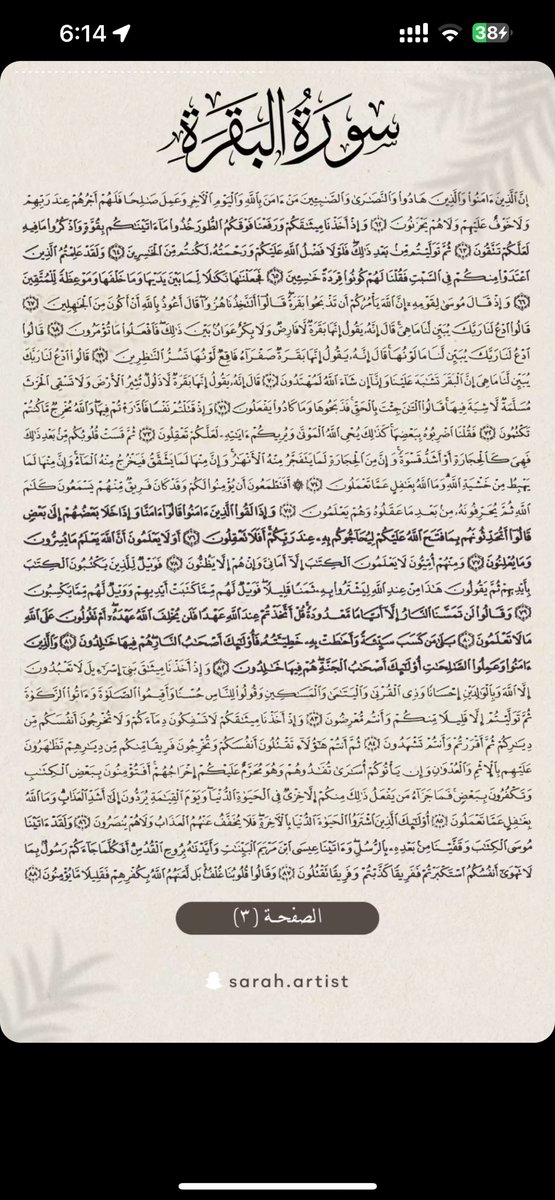 6:14
38
سورة البقرة
إِنَّ الَّذِينَ ءَامَنُوا وَالَّذِينَ هَادُوا وَالنَّصَٰرَىٰ وَالصَّٰبِـِٔينَ مَنْ ءَامَنَ بِاللَّهِ وَالْيَوْمِ الْءَاخِرِ وَعَمِلَ صَٰلِحًا فَلَهُمْ أَجْرُهُمْ عِندَ رَبِّهِمْ
وَلَا خَوْفٌ عَلَيْهِمْ وَلَا هُمْ يَحْزَنُونَ ﴿٦٢﴾ وَإِذْ أَخَذْنَا مِيثَٰقَكُمْ وَرَفَعْنَا فَوْقَكُمُ الطُّورَ خُذُوا مَا ءَاتَيْنَٰكُم بِقُوَّةٍ وَاذْكُرُوا مَا فِيهِ
لَعَلَّكُمْ تَتَّقُونَ ﴿٦٣﴾ ثُمَّ تَوَلَّيْتُم مِّنۢ بَعْدِ ذَٰلِكَ فَلَوْلَا فَضْلُ اللَّهِ عَلَيْكُمْ وَرَحْمَتُهُ لَكُنتُم مِّنَ الْخَٰسِرِينَ ﴿٦٤﴾ وَلَقَدْ عَلِمْتُمُ الَّذِينَ
اعْتَدَوْا مِنكُمْ فِي السَّبْتِ فَقُلْنَا لَهُمْ كُونُوا قِرَدَةً خَٰسِـِٔينَ ﴿٦٥﴾ فَجَعَلْنَٰهَا نَكَٰلًا لِّمَا بَيْنَ يَدَيْهَا وَمَا خَلْفَهَا وَمَوْعِظَةً لِّلْمُتَّقِينَ
﴿٦٦﴾ وَإِذْ قَالَ مُوسَىٰ لِقَوْمِهِ إِنَّ اللَّهَ يَأْمُرُكُمْ أَن تَذْبَحُوا بَقَرَةً قَالُوا أَتَتَّخِذُنَا هُزُوًا قَالَ أَعُوذُ بِاللَّهِ أَنْ أَكُونَ مِنَ الْجَٰهِلِينَ ﴿٦٧﴾
قَالُوا ادْعُ لَنَا رَبَّكَ يُبَيِّن لَّنَا مَا هِيَ قَالَ إِنَّهُ يَقُولُ إِنَّهَا بَقَرَةٌ لَّا فَارِضٌ وَلَا بِكْرٌ عَوَانٌۢ بَيْنَ ذَٰلِكَ فَافْعَلُوا مَا تُؤْمَرُونَ ﴿٦٨﴾ قَالُوا
ادْعُ لَنَا رَبَّكَ يُبَيِّن لَّنَا مَا لَوْنُهَا قَالَ إِنَّهُ يَقُولُ إِنَّهَا بَقَرَةٌ صَفْرَاءُ فَاقِعٌ لَّوْنُهَا تَسُرُّ النَّٰظِرِينَ ﴿٦٩﴾ قَالُوا ادْعُ لَنَا رَبَّكَ
يُبَيِّن لَّنَا مَا هِيَ إِنَّ الْبَقَرَ تَشَٰبَهَ عَلَيْنَا وَإِنَّا إِن شَاءَ اللَّهُ لَمُهْتَدُونَ ﴿٧٠﴾ قَالَ إِنَّهُ يَقُولُ إِنَّهَا بَقَرَةٌ لَّا ذَلُولٌ تُثِيرُ الْأَرْضَ وَلَا تَسْقِي الْحَرْثَ
مُسَلَّمَةٌ لَّا شِيَةَ فِيهَا قَالُوا الْـَٰٔنَ جِئْتَ بِالْحَقِّ فَذَبَحُوهَا وَمَا كَادُوا يَفْعَلُونَ ﴿٧١﴾ وَإِذْ قَتَلْتُمْ نَفْسًا فَادَّٰرَْٰٔتُمْ فِيهَا وَاللَّهُ مُخْرِجٌ مَّا كُنتُمْ
تَكْتُمُونَ ﴿٧٢﴾ فَقُلْنَا اضْرِبُوهُ بِبَعْضِهَا كَذَٰلِكَ يُحْيِ اللَّهُ الْمَوْتَىٰ وَيُرِيكُمْ ءَايَٰتِهِ لَعَلَّكُمْ تَعْقِلُونَ ﴿٧٣﴾ ثُمَّ قَسَتْ قُلُوبُكُم مِّنۢ بَعْدِ ذَٰلِكَ
فَهِيَ كَالْحِجَارَةِ أَوْ أَشَدُّ قَسْوَةً وَإِنَّ مِنَ الْحِجَارَةِ لَمَا يَتَفَجَّرُ مِنْهُ الْأَنْهَٰرُ وَإِنَّ مِنْهَا لَمَا يَشَّقَّقُ فَيَخْرُجُ مِنْهُ الْمَاءُ وَإِنَّ مِنْهَا لَمَا
يَهْبِطُ مِنْ خَشْيَةِ اللَّهِ وَمَا اللَّهُ بِغَٰفِلٍ عَمَّا تَعْمَلُونَ ﴿٧٤﴾ ۞ أَفَتَطْمَعُونَ أَن يُؤْمِنُوا لَكُمْ وَقَدْ كَانَ فَرِيقٌ مِّنْهُمْ يَسْمَعُونَ كَلَٰمَ
اللَّهِ ثُمَّ يُحَرِّفُونَهُ مِنۢ بَعْدِ مَا عَقَلُوهُ وَهُمْ يَعْلَمُونَ ﴿٧٥﴾ وَإِذَا لَقُوا الَّذِينَ ءَامَنُوا قَالُوا ءَامَنَّا وَإِذَا خَلَا بَعْضُهُمْ إِلَىٰ بَعْضٍ
قَالُوا أَتُحَدِّثُونَهُم بِمَا فَتَحَ اللَّهُ عَلَيْكُمْ لِيُحَاجُّوكُم بِهِ عِندَ رَبِّكُمْ أَفَلَا تَعْقِلُونَ ﴿٧٦﴾ أَوَلَا يَعْلَمُونَ أَنَّ اللَّهَ يَعْلَمُ مَا يُسِرُّونَ
وَمَا يُعْلِنُونَ ﴿٧٧﴾ وَمِنْهُمْ أُمِّيُّونَ لَا يَعْلَمُونَ الْكِتَٰبَ إِلَّا أَمَانِيَّ وَإِنْ هُمْ إِلَّا يَظُنُّونَ ﴿٧٨﴾ فَوَيْلٌ لِّلَّذِينَ يَكْتُبُونَ الْكِتَٰبَ
بِأَيْدِيهِمْ ثُمَّ يَقُولُونَ هَٰذَا مِنْ عِندِ اللَّهِ لِيَشْتَرُوا بِهِ ثَمَنًا قَلِيلًا فَوَيْلٌ لَّهُم مِّمَّا كَتَبَتْ أَيْدِيهِمْ وَوَيْلٌ لَّهُم مِّمَّا يَكْسِبُونَ
﴿٧٩﴾ وَقَالُوا لَن تَمَسَّنَا النَّارُ إِلَّا أَيَّامًا مَّعْدُودَةً قُلْ أَتَّخَذْتُمْ عِندَ اللَّهِ عَهْدًا فَلَن يُخْلِفَ اللَّهُ عَهْدَهُ أَمْ تَقُولُونَ عَلَى اللَّهِ
مَا لَا تَعْلَمُونَ ﴿٨٠﴾ بَلَىٰ مَن كَسَبَ سَيِّئَةً وَأَحَٰطَتْ بِهِ خَطِيـَٔتُهُ فَأُولَٰئِكَ أَصْحَٰبُ النَّارِ هُمْ فِيهَا خَٰلِدُونَ ﴿٨١﴾ وَالَّذِينَ
ءَامَنُوا وَعَمِلُوا الصَّٰلِحَٰتِ أُولَٰئِكَ أَصْحَٰبُ الْجَنَّةِ هُمْ فِيهَا خَٰلِدُونَ ﴿٨٢﴾ وَإِذْ أَخَذْنَا مِيثَٰقَ بَنِي إِسْرَٰءِيلَ لَا تَعْبُدُونَ
إِلَّا اللَّهَ وَبِالْوَٰلِدَيْنِ إِحْسَانًا وَذِي الْقُرْبَىٰ وَالْيَتَٰمَىٰ وَالْمَسَٰكِينِ وَقُولُوا لِلنَّاسِ حُسْنًا وَأَقِيمُوا الصَّلَوٰةَ وَءَاتُوا الزَّكَوٰةَ
ثُمَّ تَوَلَّيْتُمْ إِلَّا قَلِيلًا مِّنكُمْ وَأَنتُم مُّعْرِضُونَ ﴿٨٣﴾ وَإِذْ أَخَذْنَا مِيثَٰقَكُمْ لَا تَسْفِكُونَ دِمَاءَكُمْ وَلَا تُخْرِجُونَ أَنفُسَكُم مِّن
دِيَٰرِكُمْ ثُمَّ أَقْرَرْتُمْ وَأَنتُمْ تَشْهَدُونَ ﴿٨٤﴾ ثُمَّ أَنتُمْ هَٰؤُلَاءِ تَقْتُلُونَ أَنفُسَكُمْ وَتُخْرِجُونَ فَرِيقًا مِّنكُم مِّن دِيَٰرِهِمْ تَظَٰهَرُونَ
عَلَيْهِم بِالْإِثْمِ وَالْعُدْوَٰنِ وَإِن يَأْتُوكُمْ أُسَٰرَىٰ تُفَٰدُوهُمْ وَهُوَ مُحَرَّمٌ عَلَيْكُمْ إِخْرَاجُهُمْ أَفَتُؤْمِنُونَ بِبَعْضِ الْكِتَٰبِ
وَتَكْفُرُونَ بِبَعْضٍ فَمَا جَزَاءُ مَن يَفْعَلُ ذَٰلِكَ مِنكُمْ إِلَّا خِزْيٌ فِي الْحَيَوٰةِ الدُّنْيَا وَيَوْمَ الْقِيَٰمَةِ يُرَدُّونَ إِلَىٰ أَشَدِّ الْعَذَابِ وَمَا اللَّهُ
بِغَٰفِلٍ عَمَّا تَعْمَلُونَ ﴿٨٥﴾ أُولَٰئِكَ الَّذِينَ اشْتَرَوُا الْحَيَوٰةَ الدُّنْيَا بِالْءَاخِرَةِ فَلَا يُخَفَّفُ عَنْهُمُ الْعَذَابُ وَلَا هُمْ يُنصَرُونَ ﴿٨٦﴾ وَلَقَدْ ءَاتَيْنَا
مُوسَى الْكِتَٰبَ وَقَفَّيْنَا مِنۢ بَعْدِهِ بِالرُّسُلِ وَءَاتَيْنَا عِيسَى ابْنَ مَرْيَمَ الْبَيِّنَٰتِ وَأَيَّدْنَٰهُ بِرُوحِ الْقُدُسِ أَفَكُلَّمَا جَاءَكُمْ رَسُولٌۢ بِمَا
لَا تَهْوَىٰ أَنفُسُكُمُ اسْتَكْبَرْتُمْ فَفَرِيقًا كَذَّبْتُمْ وَفَرِيقًا تَقْتُلُونَ ﴿٨٧﴾ وَقَالُوا قُلُوبُنَا غُلْفٌۢ بَل لَّعَنَهُمُ اللَّهُ بِكُفْرِهِمْ فَقَلِيلًا مَّا يُؤْمِنُونَ ﴿٨٨﴾
الصفحة (٣)
sarah.artist